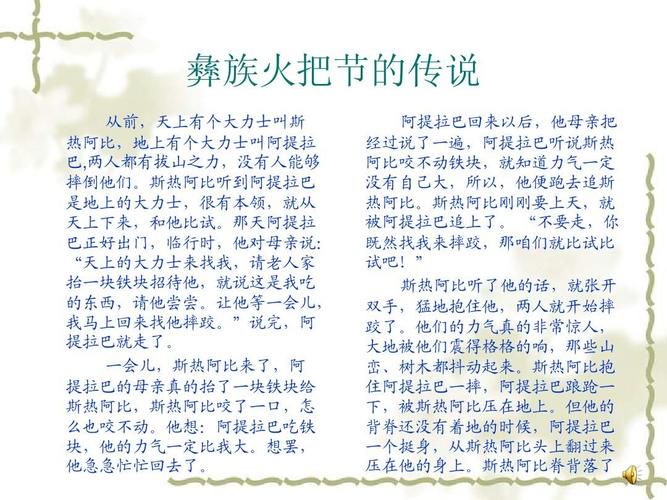 彝族火把节的传说
从前，天上有个大力士叫斯
热阿比，地上有个大力士叫阿提拉
巴,两人都有拔山之力，没有人能够
摔倒他们。斯热阿比听到阿提拉巴
是地上的大力士，很有本领，就从
天上下来，和他比试。那天阿提拉
巴正好出门，临行时，他对母亲说:
“天上的大力士来找我，请老人家
抬一块铁块招待他，就说这是我吃
的东西，请他尝尝。让他等一会儿，
我马上回来找他摔跤。”说完，阿
提拉巴就走了。
一会儿，斯热阿比来了，阿
提拉巴的母亲真的抬了一块铁块给
斯热阿比，斯热阿比咬了一口，怎
么也咬不动。他想：阿提拉巴吃铁
块，他的力气一定比我大。想罢，
他急急忙忙回去了。
阿提拉巴回来以后，他母亲把
经过说了一遍，阿提拉巴听说斯热
阿比咬不动铁块，就知道力气一定
没有自己大，所以，他便跑去追斯
热阿比。斯热阿比刚刚要上天，就
被阿提拉巴追上了。“不要走，你
既然找我来摔跤，那咱们就比试比
试吧！”
斯热阿比听了他的话，就张开
双手，猛地抱住他，两人就开始摔
跤了。他们的力气真的非常惊人，
大地被他们震得格格的响，那些山
峦、树木都抖动起来。斯热阿比抱
住阿提拉巴一摔，阿提拉巴踉跄一
下，被斯热阿比压在地上。但他的
背脊还没有着地的时候，阿提拉巴
一个挺身，从斯热阿比头上翻过来
压在他的身上。斯热阿比脊背落了